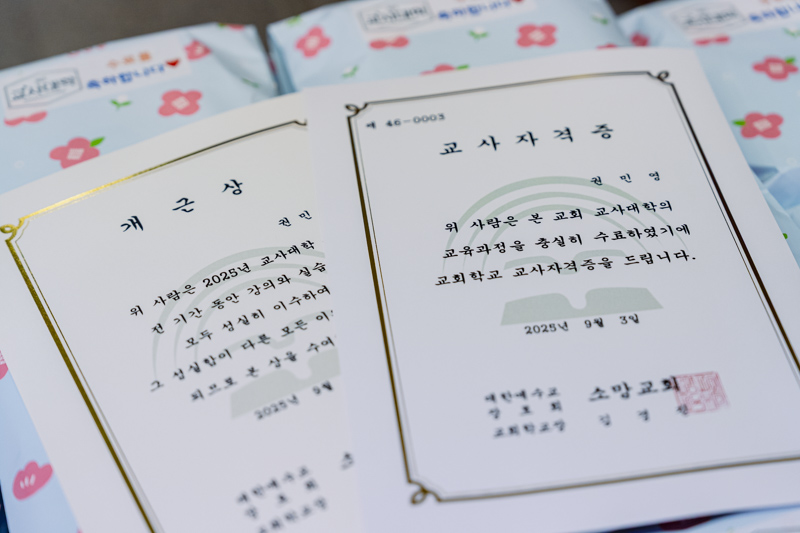 교사대학
수료를
축하합니다
축하합니다
개근상
권민
위 사람은 2025년 교사대학
전 기간 동안 강의와 실습
모두 성실히 이수하여
그 성실함이 다른 모든 이
되므로 본 상을 수여
2025년 9월
대한예수교
장로회
교회학교장
제 46-0003
교사자격증
권민영
위 사람은 본 교회 교사대학의
교육과정을 충실히 수료하였기에
교회학교 교사자격증을 드립니다.
2025년 9월 3일
대한예수교
장로회 소망교회
교회학교장 김경진